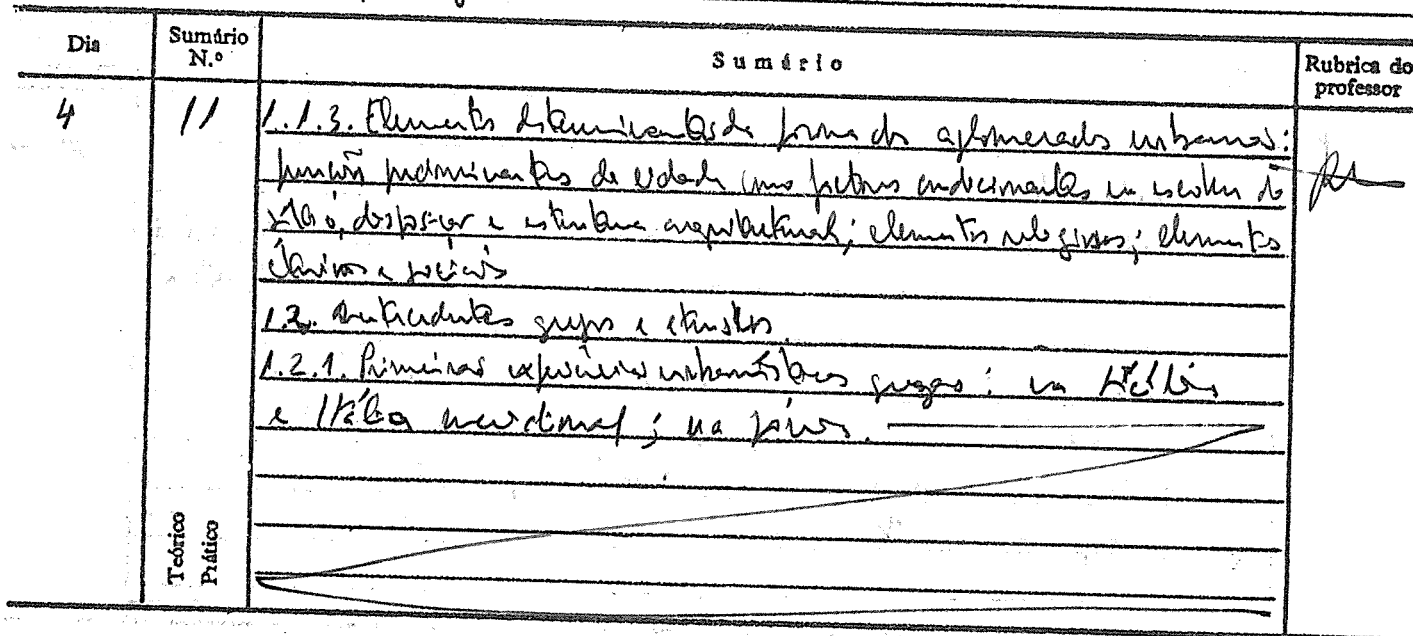 Dia
Sumário N.º
Sumário
Rubrica do professor
4
11
1.1.3. Elementos determinantes da forma do aglomerado urbano:
funções predominantes da cidade como factores condicionantes na escolha do
sítio, e estrutura arquitectural; elementos religiosos; elementos
e sociais
1.2. Antecedentes gregos e etruscos.
1.2.1. Primeiras experiências urbanísticas gregas: na
e Itália meridional; na Jónia.
Teórico
Prático